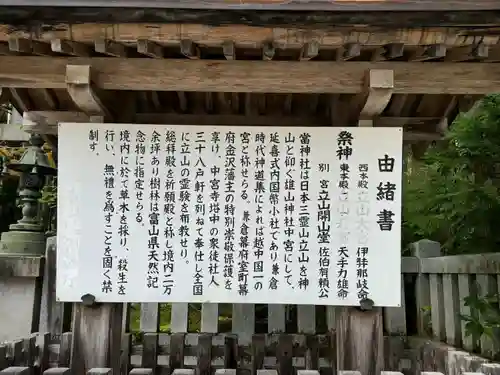 由緒書
祭神
西本殿 立山 伊邪那岐命
東本殿 立山 天手力雄命
別宮 立山開山堂 佐伯有頼公
当神社は日本三霊山立山を神
山と仰ぐ雄山神社中宮にして、
延喜式内国幣小社であり神道
時代神道集によれば越中国一の
宮と称せらる。兼倉幕府室町幕
府金沢藩主の特別崇敬保護を
享け、中宮寺塔中の衆徒社人
三十八戸軒を列ねて奉仕し全国
に立山の霊験を布教せり。
総拝殿を祈願殿と称し境内二万
余坪あり樹林は富山県天然記
念物に指定せらる。
境内に於て草木を採り、殺生を
行い、無禮を為すことを固く禁
制す